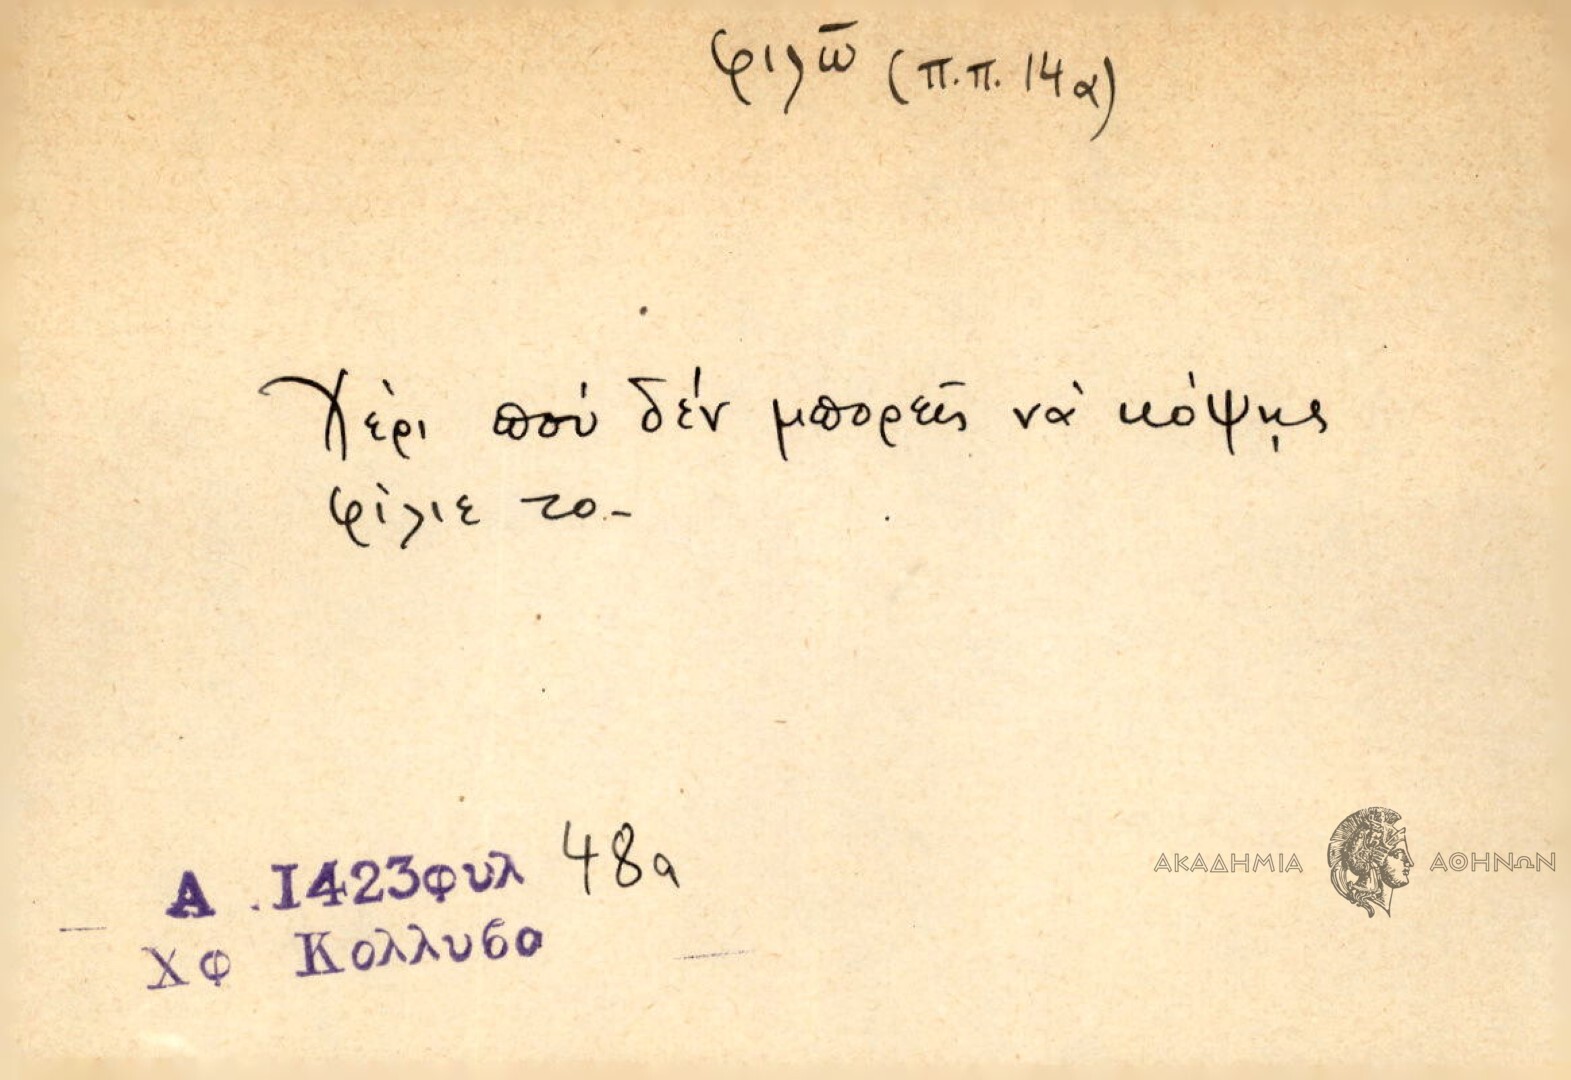 φιλῶ (π.π. 14α)
Χέρι πού δέν μπορεῖς νά κόψῃς
φίλιε το.-
Α .1423φυλ 48α
Χφ Κολλυβα
ΑΚΑΔΗΜΙΑ ΑΘΗΝΩΝ